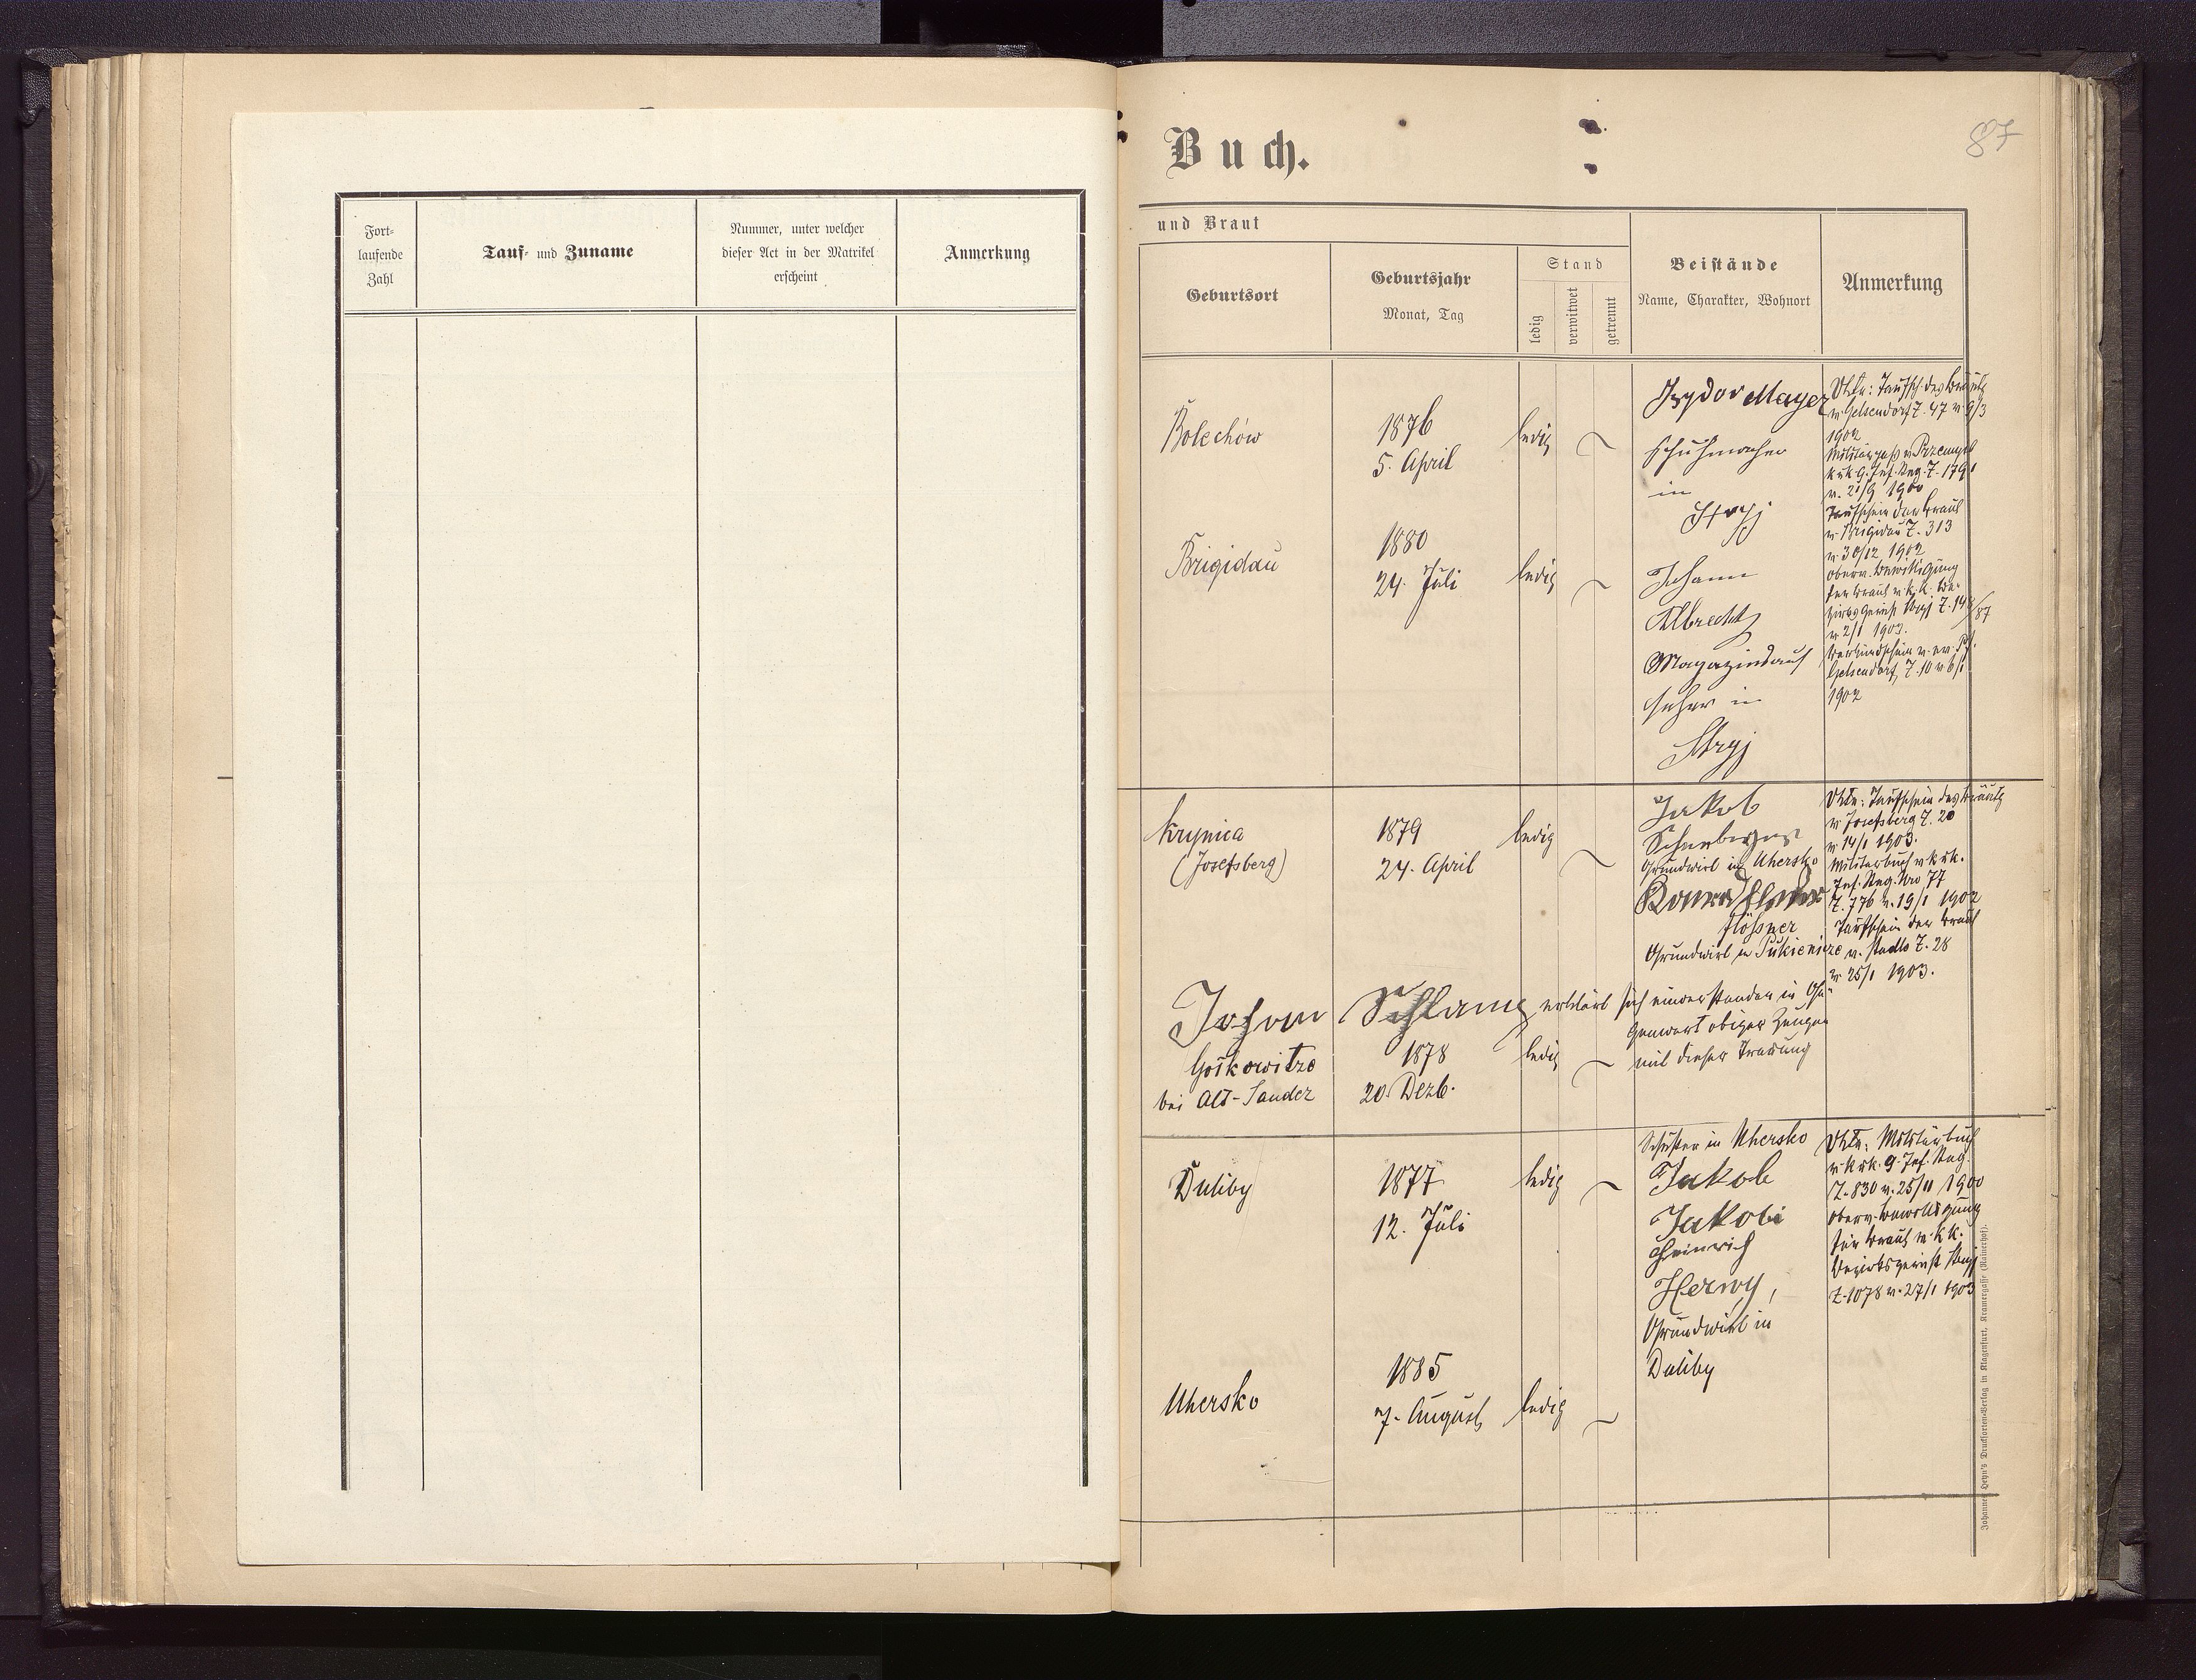 Fort-
laufende
Zahl
Tauf- und Zuname
Nummer, unter welcher
dieser Act in der Matrikel
erscheint
Anmerkung
Buch.
87
und Braut
Geburtsort
Geburtsjahr
Monat, Tag
Stand
ledig
verwitwet
getrennt
Beistände
Name, Charakter, Wohnort
Anmerkung
Bolechów
1876
5. April
ledig
Isydor Mayer
Schuhmacher
in
Stryj
Brigidau
1880
24. Juli
ledig
Johann
Albrecht
Magazinsauf
seher in
Stryj
Urk.: Taufsch. des Bräutg
v. Gelsendorf Z. 47 v. 9/3
1902
Militärpass v. Przemysl
k. u. k. 9. Inf. Reg. Z. 1791
v. 21/9 1900
Taufschein der Braut
v. Brigidau Z. 313
v. 30/12 1902
oberv. Bewilligung
der Braut v. k. k. Be-
zirksgericht Stryj Z. 14/87
v. 2/1 1903.
Verkündschein v. ev. Pf.
Gelsendorf, Z. 10 v. 6/1
1902
Krynica
(Josefsberg)
1879
24. April
ledig
Jakob
Grundwirt in Uhersko
Konrad
Flössner
Grundwirt in Pukienicze
Urk.: Taufschein des Bräutg
v. Josefsberg Z. 20
v. 14/1 1903.
Militärbuch v. k. u. k.
Inf. Reg. Nro 77
Z. 776 v. 19/1 1902
Taufschein der Braut
v. Stadlo Z. 28
v. 25/1 1903.
Johann Schlamp erklärt sich einverstanden in Ge-
genwart obiger Zeugen
mit dieser Trauung
Goskowitze
bei Alt-Sandez
1878
20. Dezb.
ledig
Duliby
1877
12. Juli
ledig
Schuster in Uhersko
Jakob
Jakobi
Heinrich
Herwy,
Grundwirt in
Duliby
Urk.: Militärbuch
v. k. u. k. 9. Inf. Reg.
Z. 830 v. 25/11 1900
oberv. Bewilligung
für Braut v. k. k.
Bezirksgericht Stryj
Z. 1078 v. 27/1 1903
Uhersko
1885
7. August
ledig
Johannes Heyn's Drucksorten-Verlag in Klagenfurt, Kramergasse (Rainerhof).